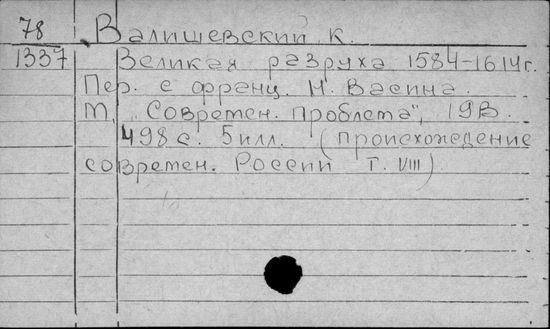 78 Валишевский К.
1337 Великая разруха 1584-1614г.
Пер. с франц. Н. Васина.
М, „Современ. проблема", 19В.
498 с. 5 илл. (происхождение
современ. России Т. VIII)